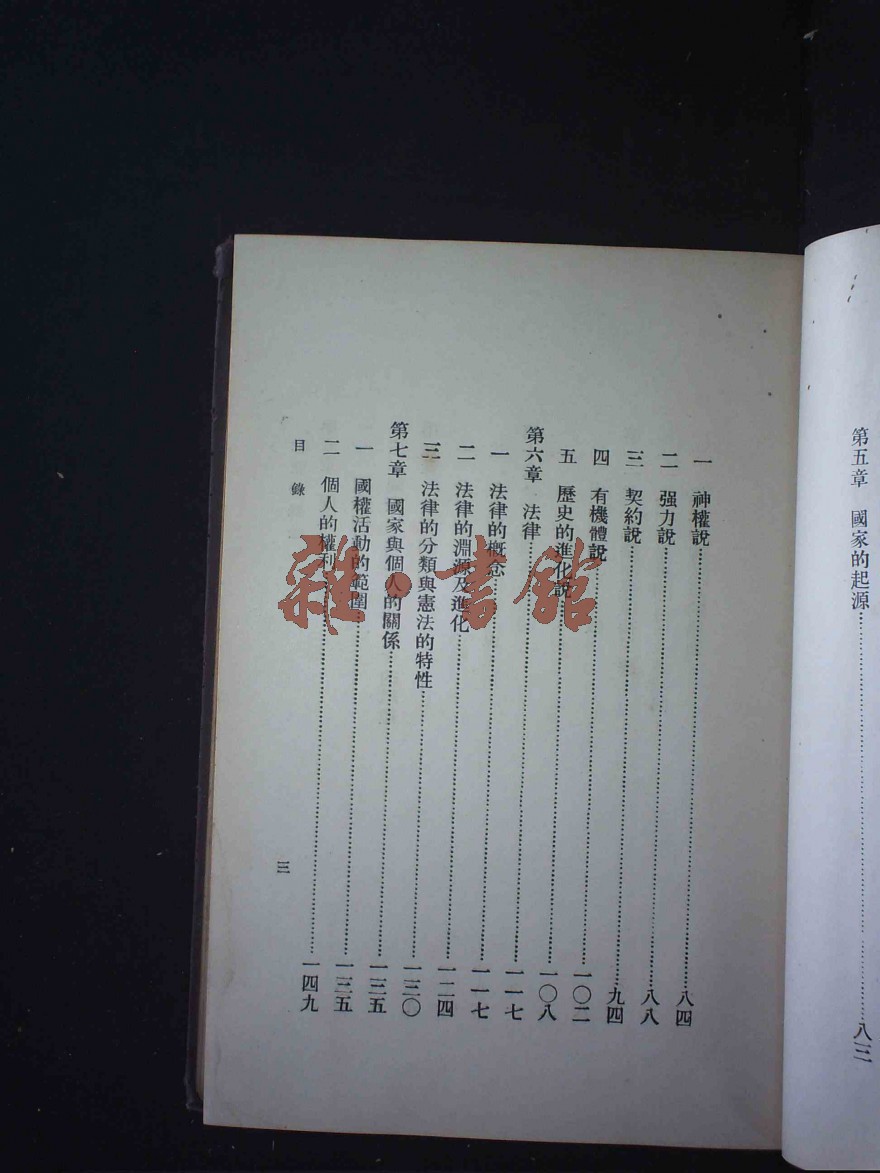 第五章　國家的起源……八三
一　神權說……八四
二　强力說……八八
三　契約說……九四
四　有機體說……一〇二
五　歷史的進化說……一〇八
第六章　法律……一一七
一　法律的概念……一一七
二　法律的淵源及進化……一二四
三　法律的分類與憲法的特性……一三〇
第七章　國家與個人的關係……一三五
一　國權活動的範圍……一三五
二　個人的權利……一四九
目錄
三
雜·書館